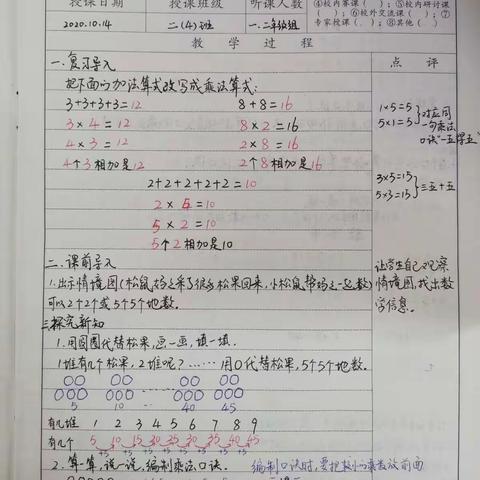 授课日期 授课班级 听课人数 ④校内赛课( );⑤校内研讨课
( );⑥校外交流课( );⑦
专家授课( );⑧其他( )
2020.10.14 二(4)班 一、二年级组
教 学 过 程 点 评
一.复习导入
把下面的加法算式改写成乘法算式:
3+3+3+3=12 8+8=16
3×4=12 8×2=16
4×3=12 2×8=16
4个3相加是12 2个8相加是16
2+2+2+2+2=10
2×5=10
5×2=10
5个2相加是10
1×5=5
5×1=5
对应同
一句乘法
口诀“一五得五”
3×5=15
5×3=15
三五十五
二.课前导入
1.出示情境图(松鼠妈妈采了很多松果回来,小松鼠帮妈妈一起数)
可以2个2个或5个5个地数。
让学生自己观察
情境图,找出数
学信息。
三.探究新知
1.用圆圈代替松果,画一画,填一填.
1堆有几个松果,2堆呢?……用○代替松果,5个5个地数。
5 10 … 40 45
有几堆 1 2 3 4 5 6 7 8 9
有几个 5 10 15 20 25 30 35 40 45
+5 +5 +5 +5 +5 +5 +5 +5
2.算一算,说一说,编制乘法口诀.
编制口诀时,要把较小的乘数放前面